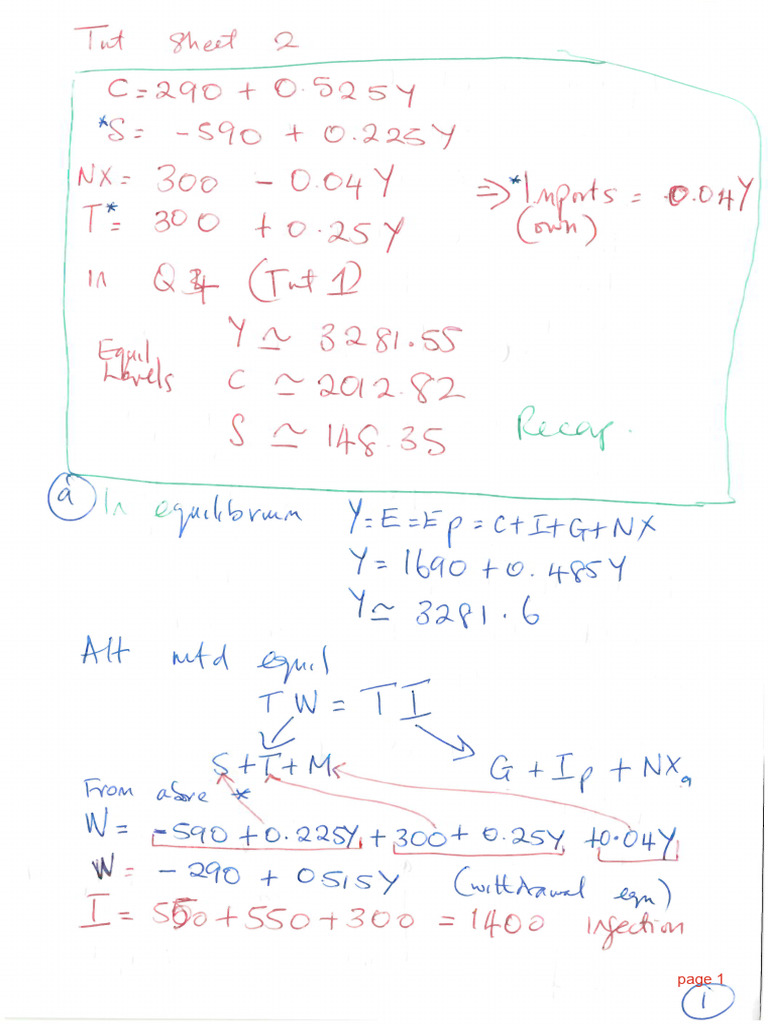 Tut Sheet 2
C = 290 + 0.525Y
*S = -590 + 0.225Y
NX = 300 - 0.04Y ⇒ *Imports = 0.04Y
(own)
T* = 300 + 0.25Y
In Q4 (Tut 1)
Equil Levels
Y ≃ 3281.55
C ≃ 2012.82
S ≃ 148.35
Recap.
(a) In equilibrium Y = E = Ep = C+I+G+NX
Y = 1690 + 0.485Y
Y ≃ 3281.6
Alt mtd equil
TW = TI
S+T+M G + Ip + NXa
From above *
W = -590 + 0.225Y + 300 + 0.25Y + 0.04Y
W = -290 + 0515Y (withdrawal eqn)
I = 550 + 550 + 300 = 1400 injection
page 1
1